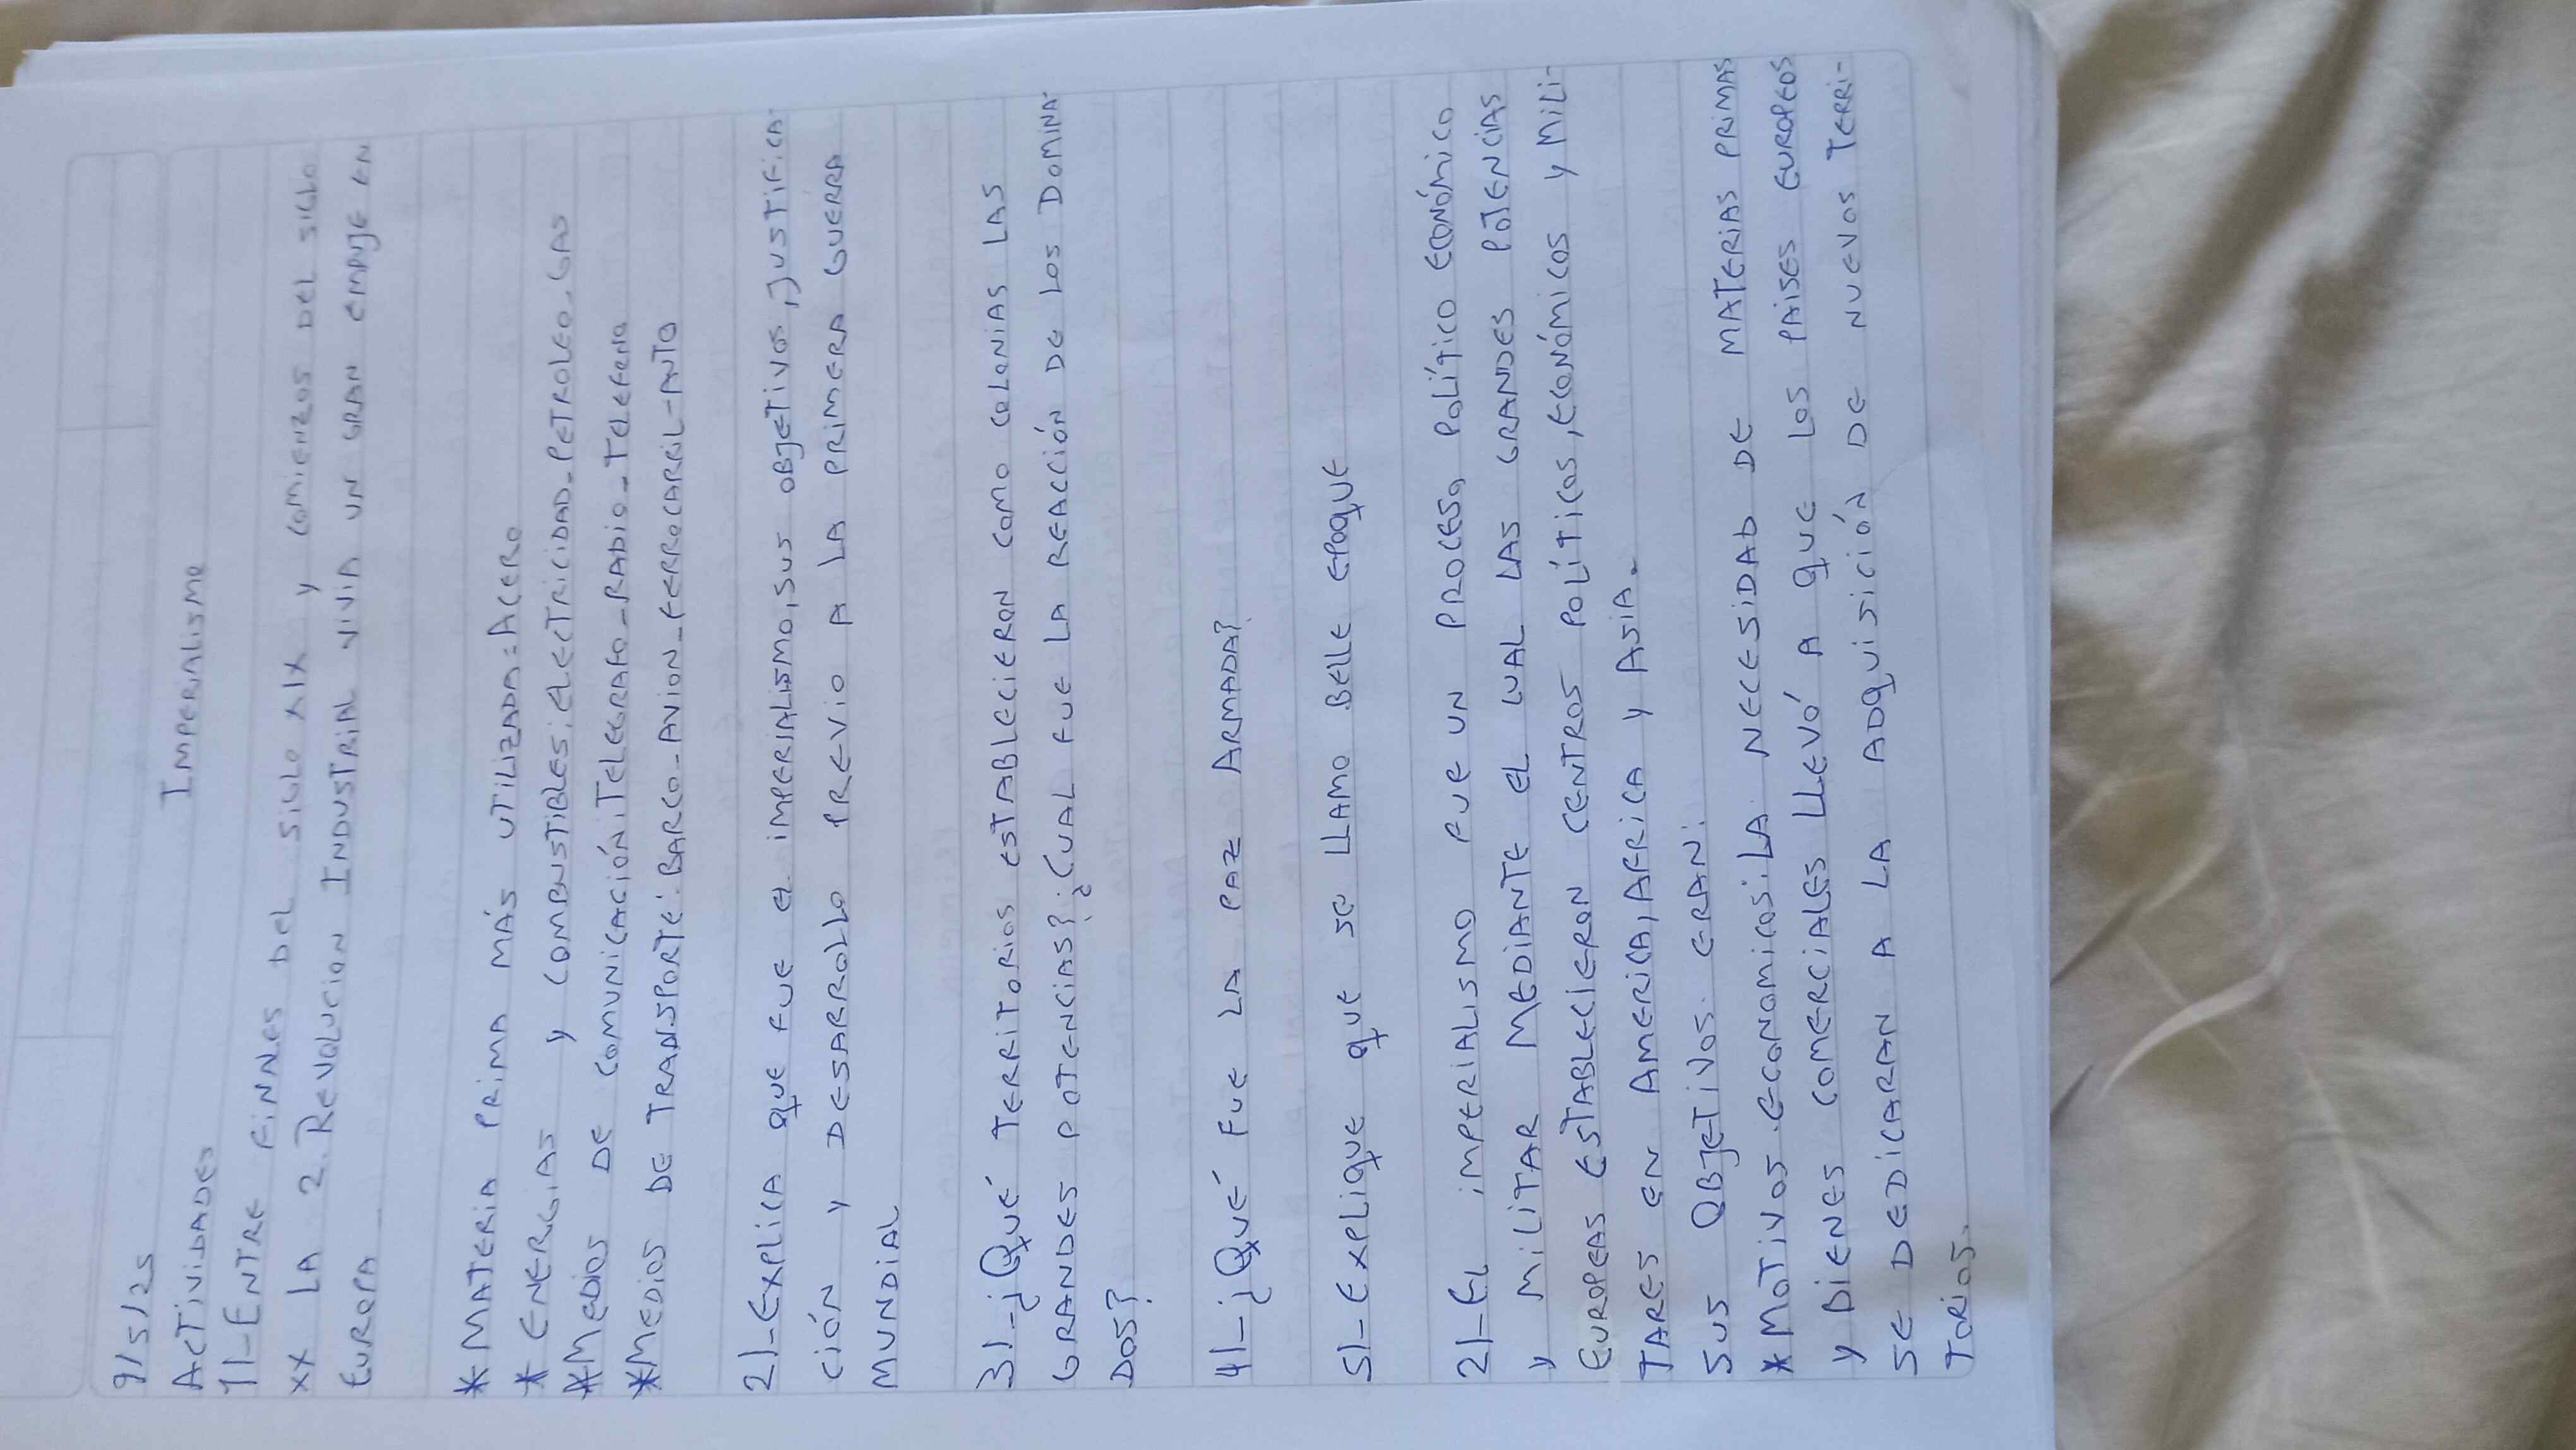 9/5/25
Imperialismo
Actividades
1)-Entre finnes del siglo XIX y comienzos del siglo
XX la 2. Revolucion Industrial vivia un gran empuje en
Europa
*Materia prima más utilizada: Acero
*Energias y combustibles: electricidad-petroleo-gas
*Medios de comunicación: Telegrafo-radio-telefono
*Medios de transporte: Barco-avion-ferrocarril-auto
2)-Explica que fue el imperialismo, sus objetivos, justifica-
ción y desarrollo previo a la primera guerra
mundial
3)-¿Qué territorios establecieron como colonias las
grandes potencias? ¿Cual fue la reacción de los domina-
dos?
4)-¿Qué fue la paz armada?
5)-Explique que se llamo Belle epoque
2)-El imperialismo fue un proceso político económico
y militar mediante el cual las grandes potencias
europeas establecieron centros políticos, económicos y mili-
tares en America, Africa y Asia.
Sus objetivos eran:
*Motivos economicos: La necesidad de materias primas
y bienes comerciales llevó a que los paises europeos
se dedicaran a la adquisición de nuevos terri-
torios.